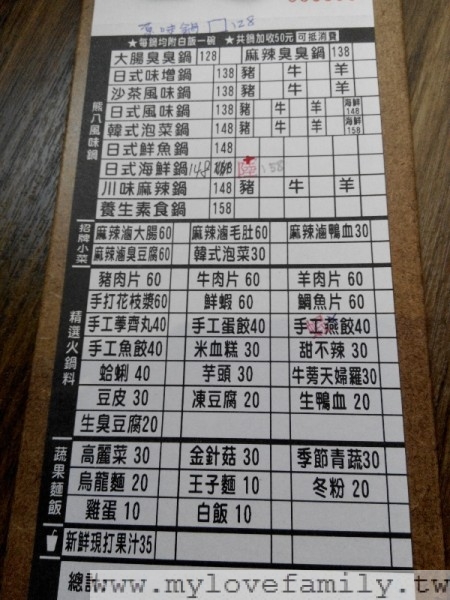 原味鍋 128
★每鍋均附白飯一碗 ★共鍋加收50元 可抵消費
熊八風味鍋
大腸臭臭鍋 128 麻辣臭臭鍋 138
日式味增鍋 138 豬 牛 羊
沙茶風味鍋 138 豬 牛 羊
日式風味鍋 138 豬 牛 羊 海鮮148
韓式泡菜鍋 138 豬 牛 羊 海鮮158
日式鮮魚鍋 148
日式海鮮鍋 148 158
川味麻辣鍋 148 豬 牛 羊
養生素食鍋 158
招牌小菜
麻辣滷大腸60 麻辣滷毛肚60 麻辣滷鴨血30
麻辣滷臭豆腐60 韓式泡菜30
精選火鍋料
豬肉片 60 牛肉片 60 羊肉片 60
手打花枝漿60 鮮蝦 60 鯛魚片 60
手工荸薺丸40 手工蛋餃40 手工燕餃40
手工魚餃40 米血糕 30 甜不辣 30
蛤蜊 40 芋頭 30 牛蒡天婦羅30
豆皮 30 凍豆腐 20 生鴨血 20
生臭豆腐20
蔬果麵飯
高麗菜 30 金針菇 30 季節青蔬30
烏龍麵 20 王子麵 10 冬粉 20
雞蛋 10 白飯 10
新鮮現打果汁35
總計:
www.mylovefamily.tw